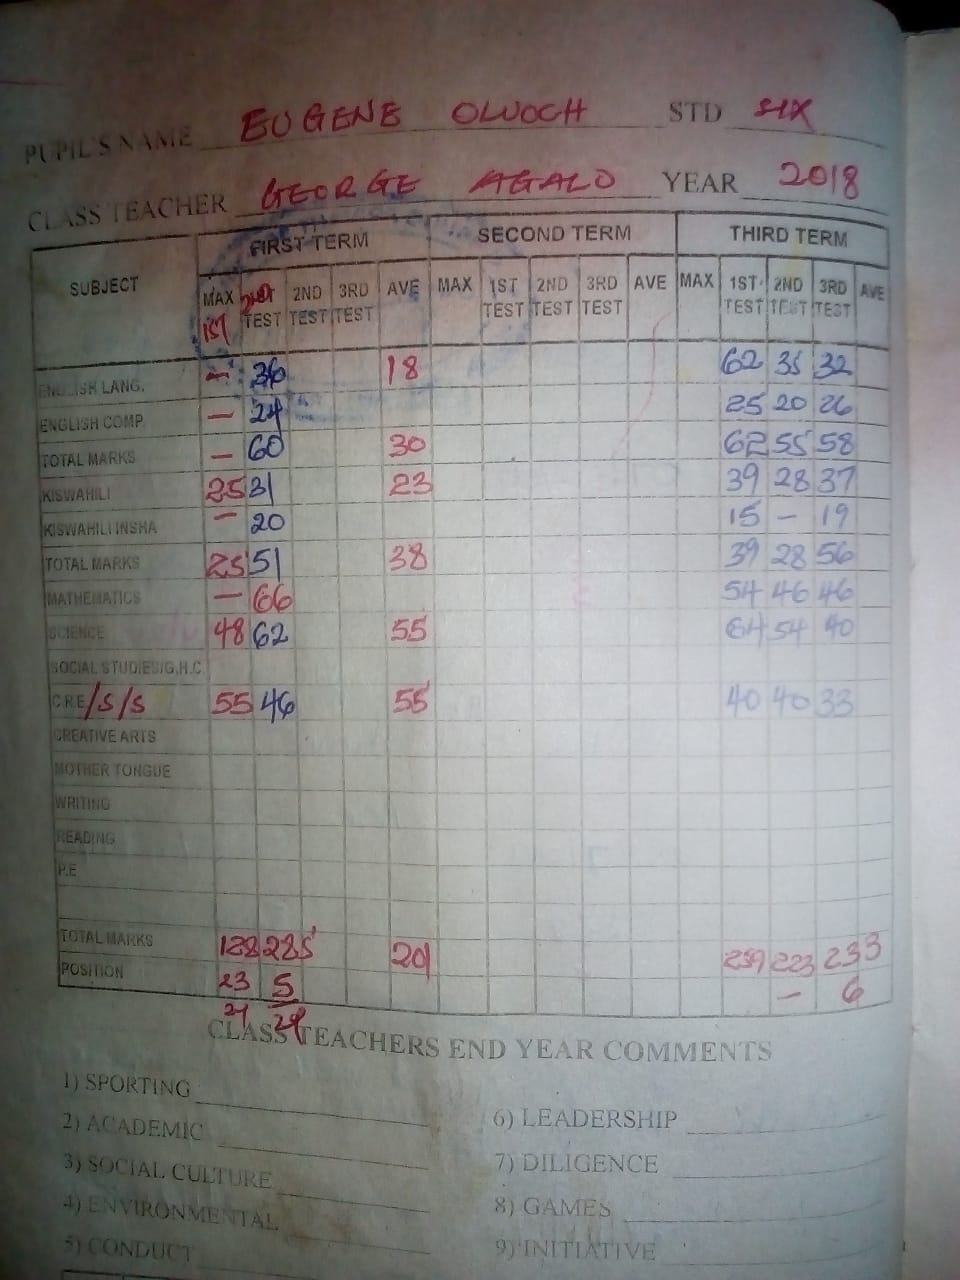 PUPIL'S NAME EUGENE OLUOCH STD SIX
CLASS TEACHER GEORGE AGALO YEAR 2018
SUBJECT FIRST TERM SECOND TERM THIRD TERM
MAX 1ST 2ND TEST 2ND TEST 3RD TEST AVE MAX 1ST TEST 2ND TEST 3RD TEST AVE MAX 1ST TEST 2ND TEST 3RD TEST AVE
ENGLISH LANG. — 36 18 62 35 32
ENGLISH COMP. — 24 25 20 26
TOTAL MARKS — 60 30 62 55 58
KISWAHILI 25 31 23 39 28 37
KISWAHILI INSHA — 20 15 — 19
TOTAL MARKS 25 51 38 39 28 56
MATHEMATICS — 66 54 46 46
SCIENCE 48 62 55 64 54 40
SOCIAL STUDIES/G.H.C.
C.R.E/S/S 55 46 55 40 40 33
CREATIVE ARTS
MOTHER TONGUE
WRITING
READING
P.E
TOTAL MARKS 128 285 201 259 223 233
POSITION 23 5 — 6
CLASS TEACHERS END YEAR COMMENTS
1) SPORTING
2) ACADEMIC
3) SOCIAL CULTURE
4) ENVIRONMENTAL
5) CONDUCT
6) LEADERSHIP
7) DILIGENCE
8) GAMES
9) INITIATIVE